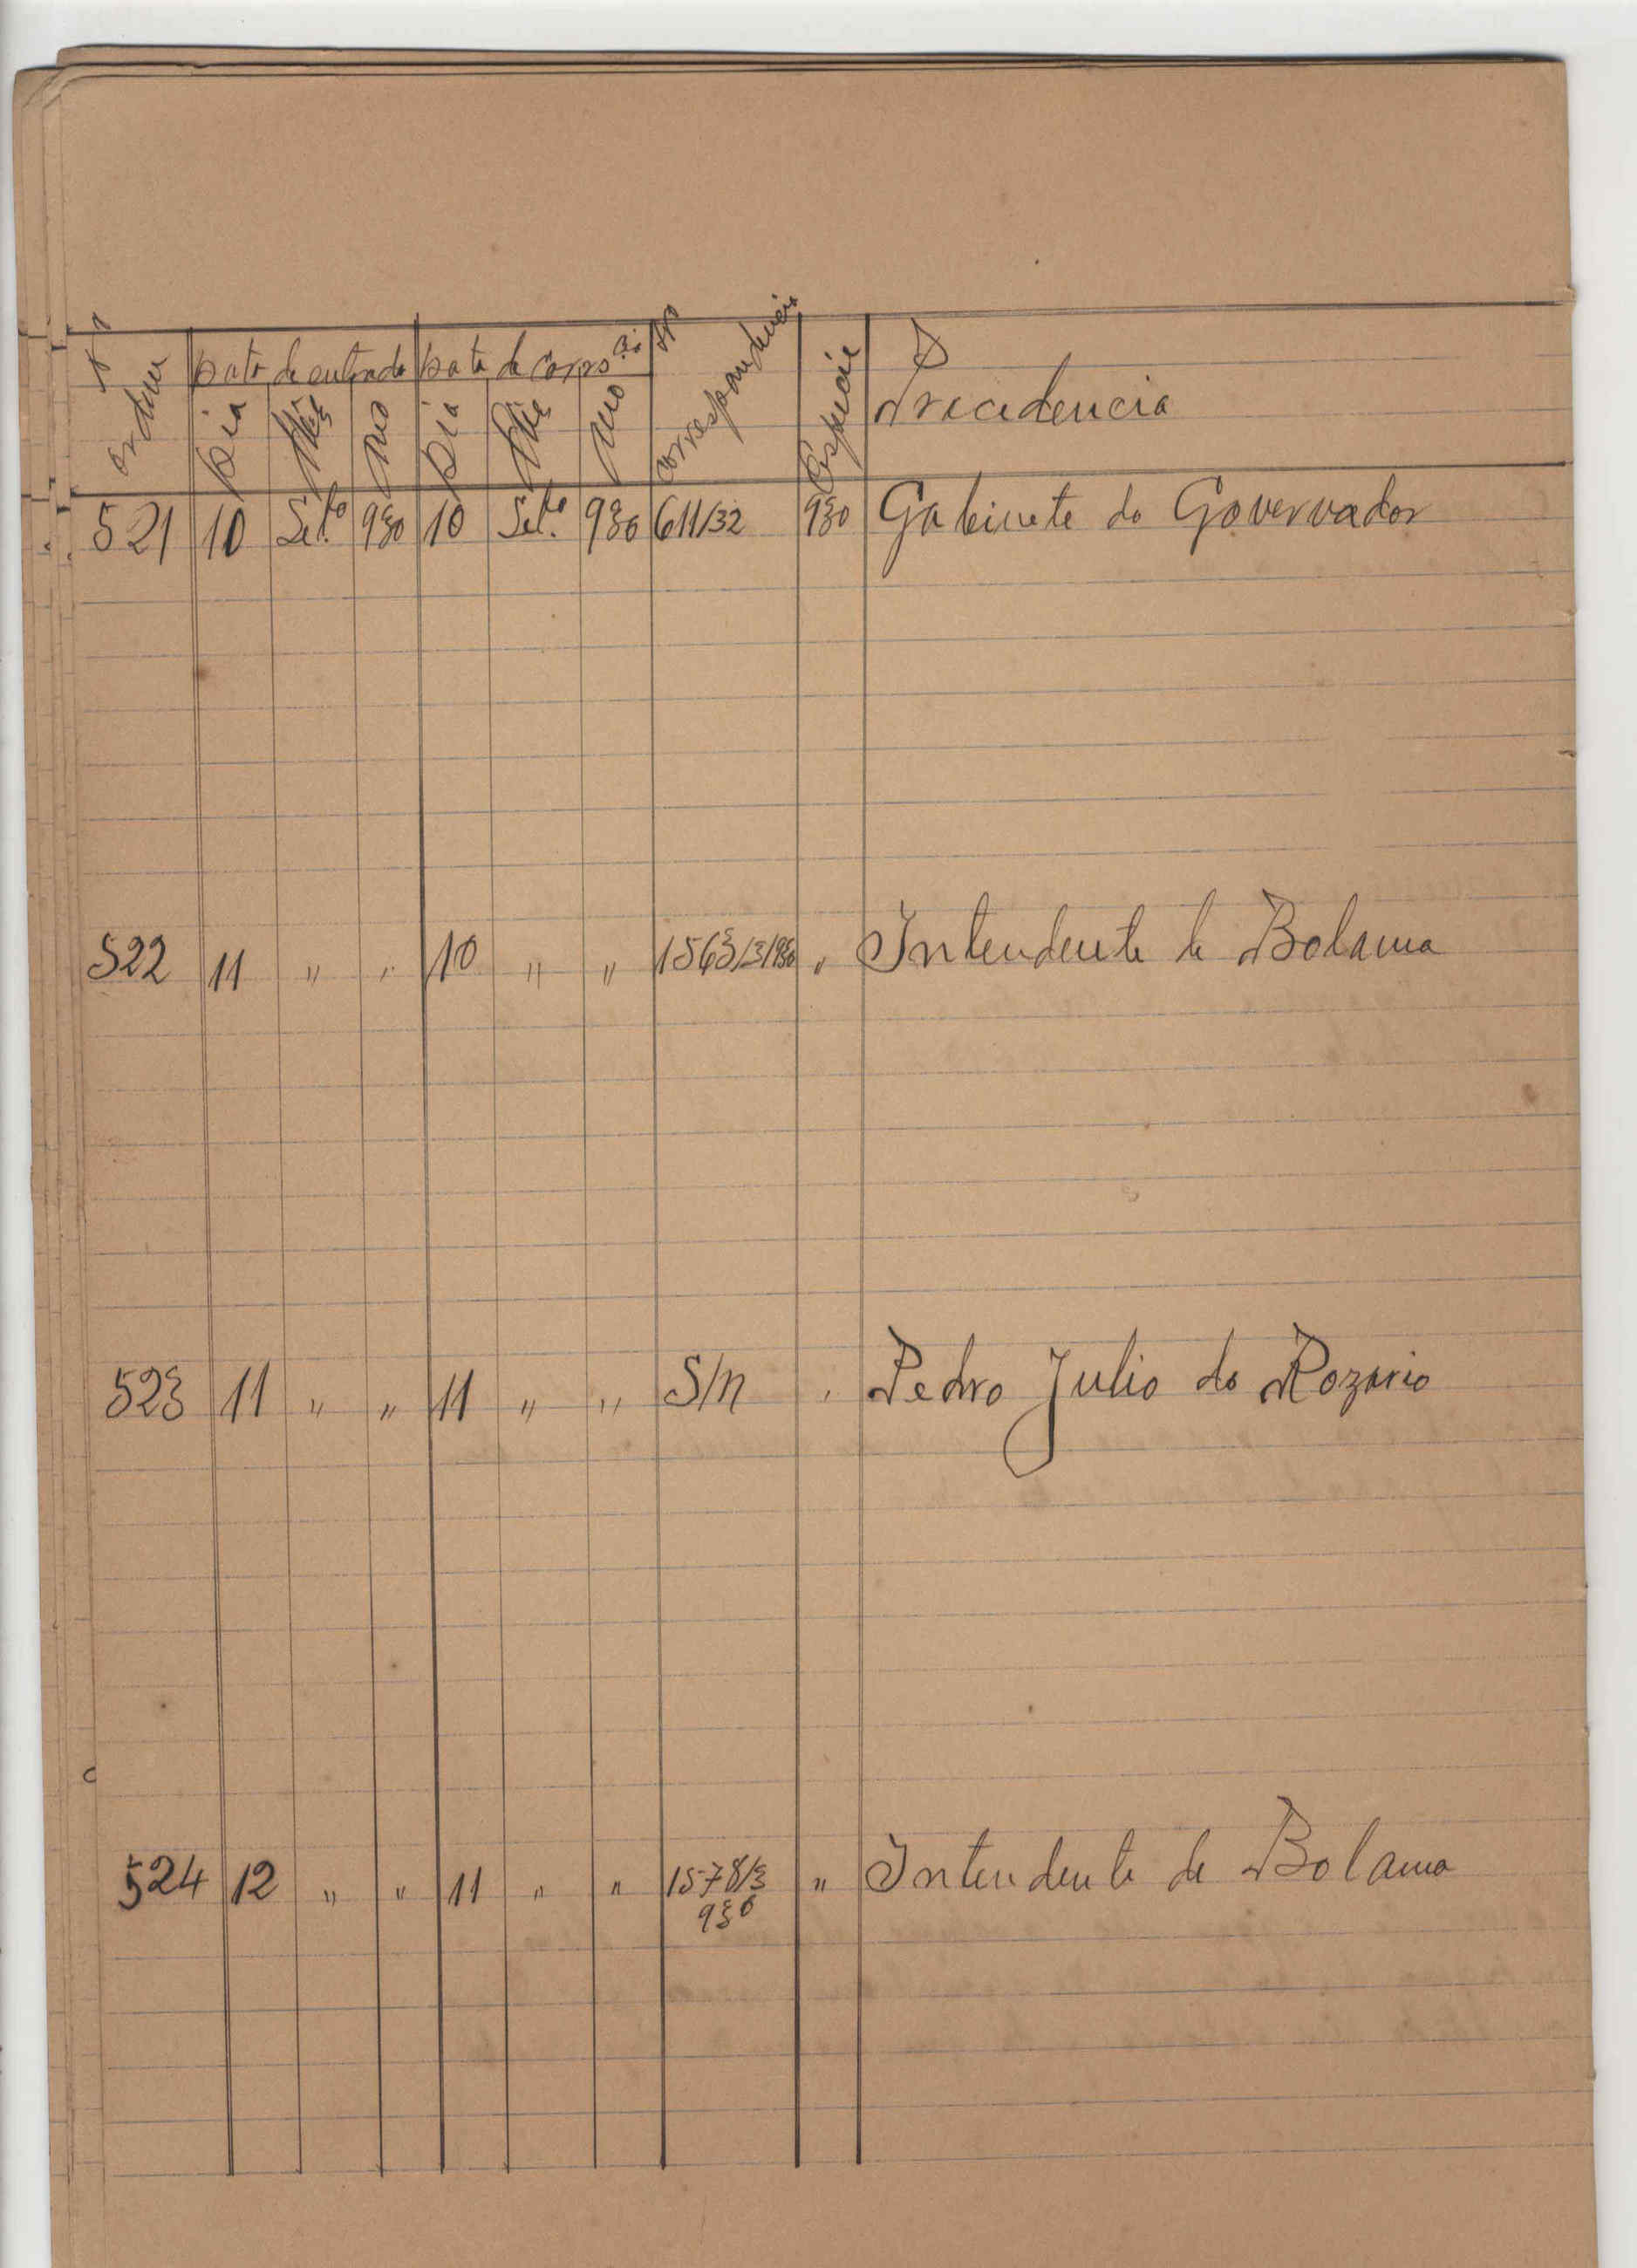 Nº ordem Data de entrada Data de corrs.cia Nº correspondencia Especie Precedencia
Dia Mês Ano Dia Mês Ano
521 10 Set.bo 930 10 Set.bo 930 611/32 930 Gabinete do Governador
522 11 " " 10 " " 1563/3/930 " Intendente de Bolama
523 11 " " 11 " " S/n " Pedro Julio do Rozario
524 12 " " 11 " " 1578/3 " Intendente de Bolama
930